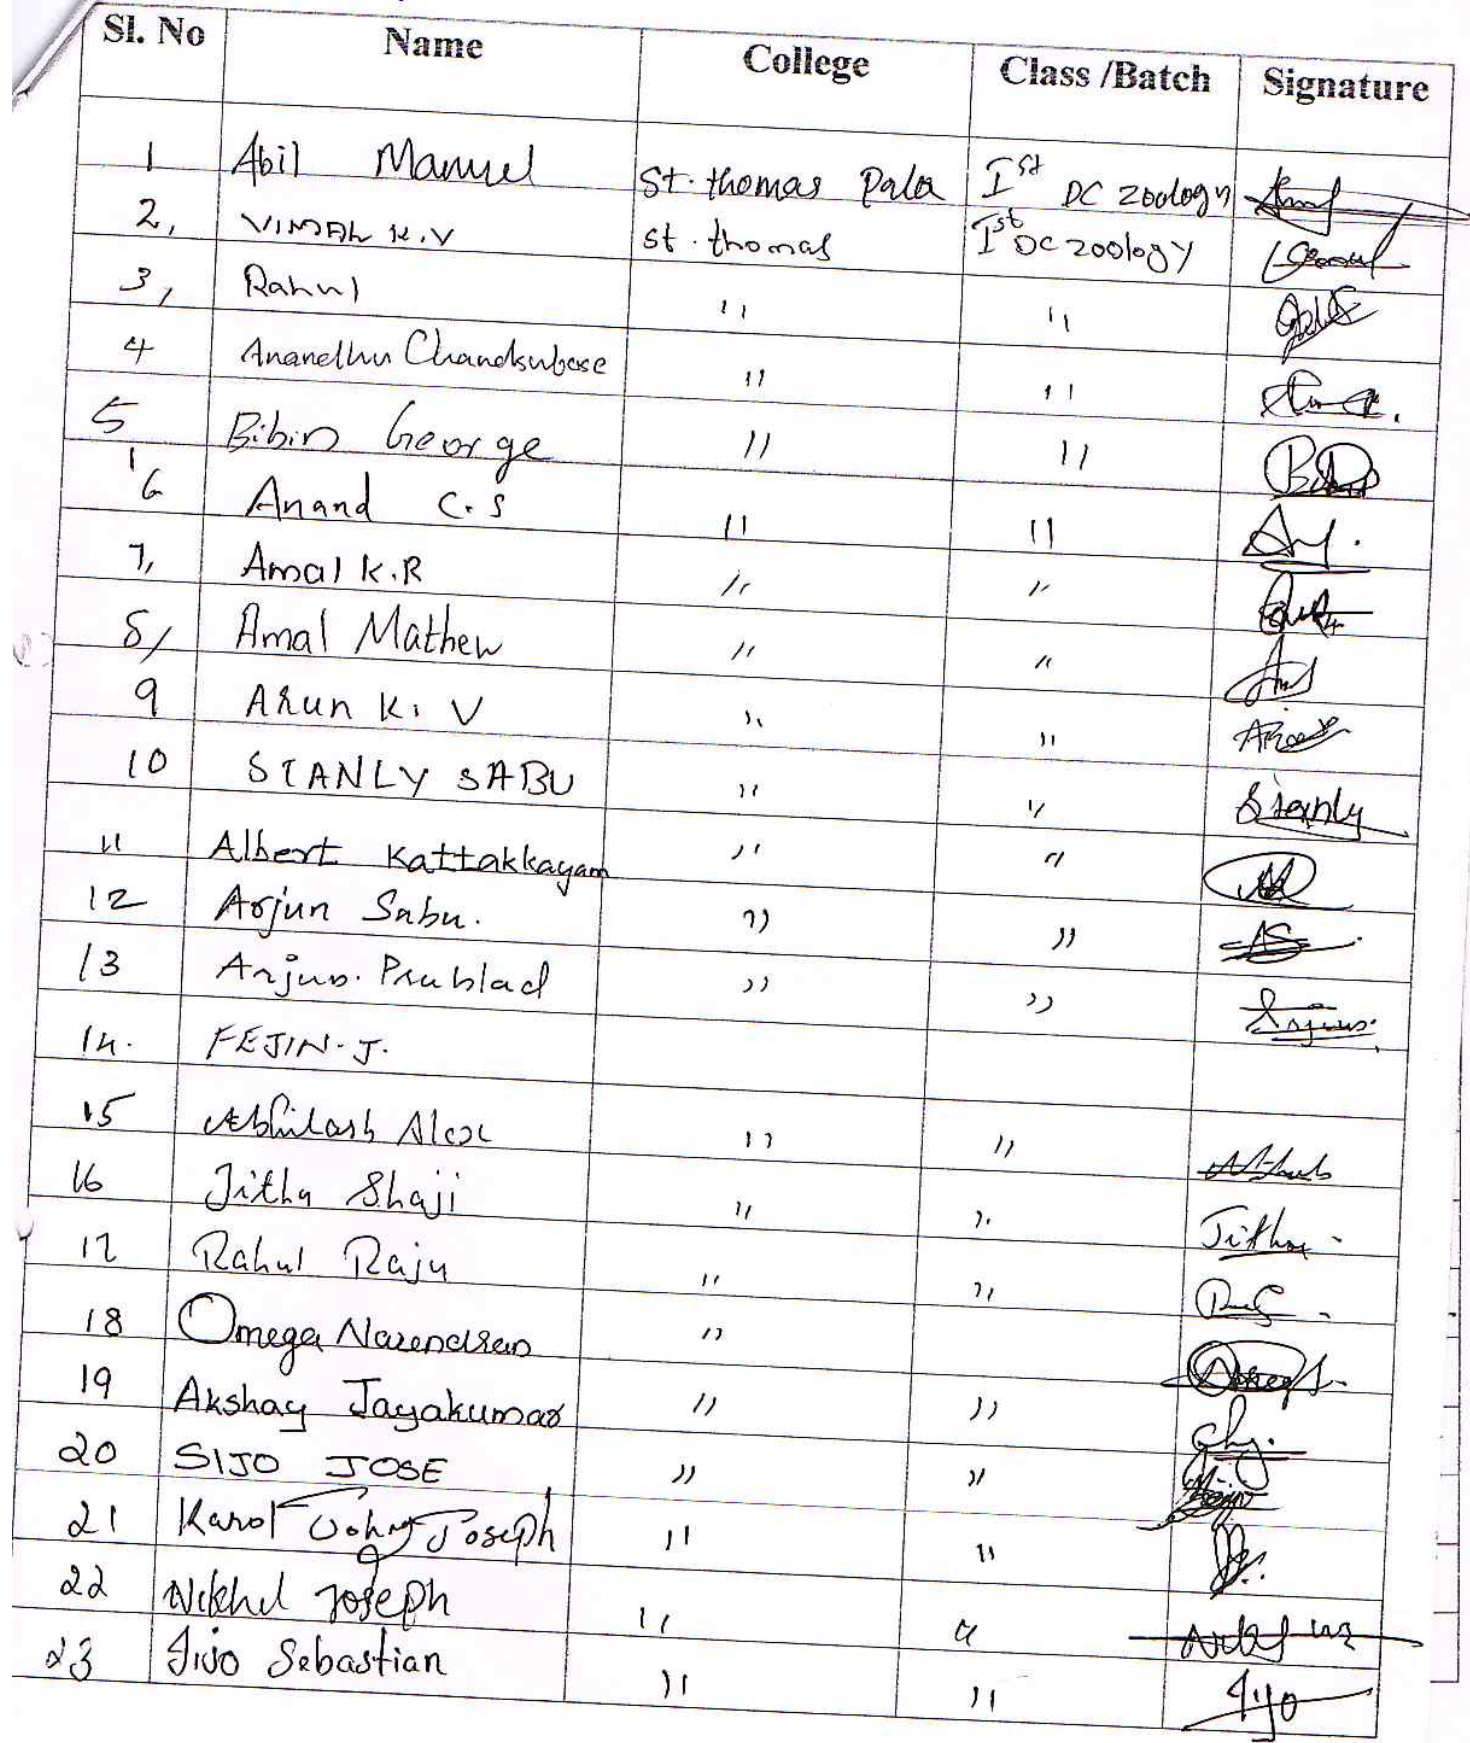 Sl. No Name College Class /Batch Signature
1 Abil Manuel St. thomas Pala Ist DC Zoology
2, VIMAL K.V St. thomas Ist DC Zoology
3, Rahul " "
4 Anandhu Chandrabose " "
5 Bibin George " "
6 Anand C.S " "
7, Amal K.R " "
8, Amal Mathew " "
9 Arun K. V " "
10 STANLY SABU " " Stanly
11 Albert Kattakkayam " "
12 Arjun Sabu. " " AS
13 Arjun. Prahlad " " Arjun.
14. FEJIN. J.
15 Abhilash Alex " "
16 Jitha Shaji " " Jitha
17 Rahul Raju " "
18 Omega Narendran "
19 Akshay Jayakumar " "
20 SIJO JOSE " "
21 Karol Johny Joseph " "
22 Nikhil Joseph " "
23 Jijo Sebastian " " Jijo